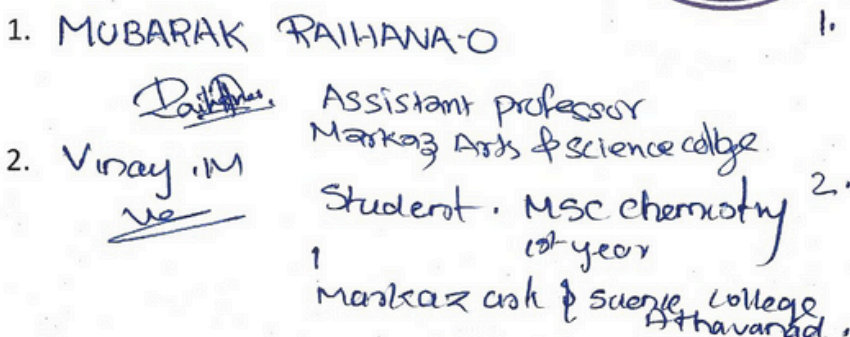 1. MUBARAK RAIHANA-O
1.
Assistant professor
Markaz Arts & science collge
2. Vinay .M
Student. MSC chemistry
2.
1st year
Markaz arts & science college
Athavanad.